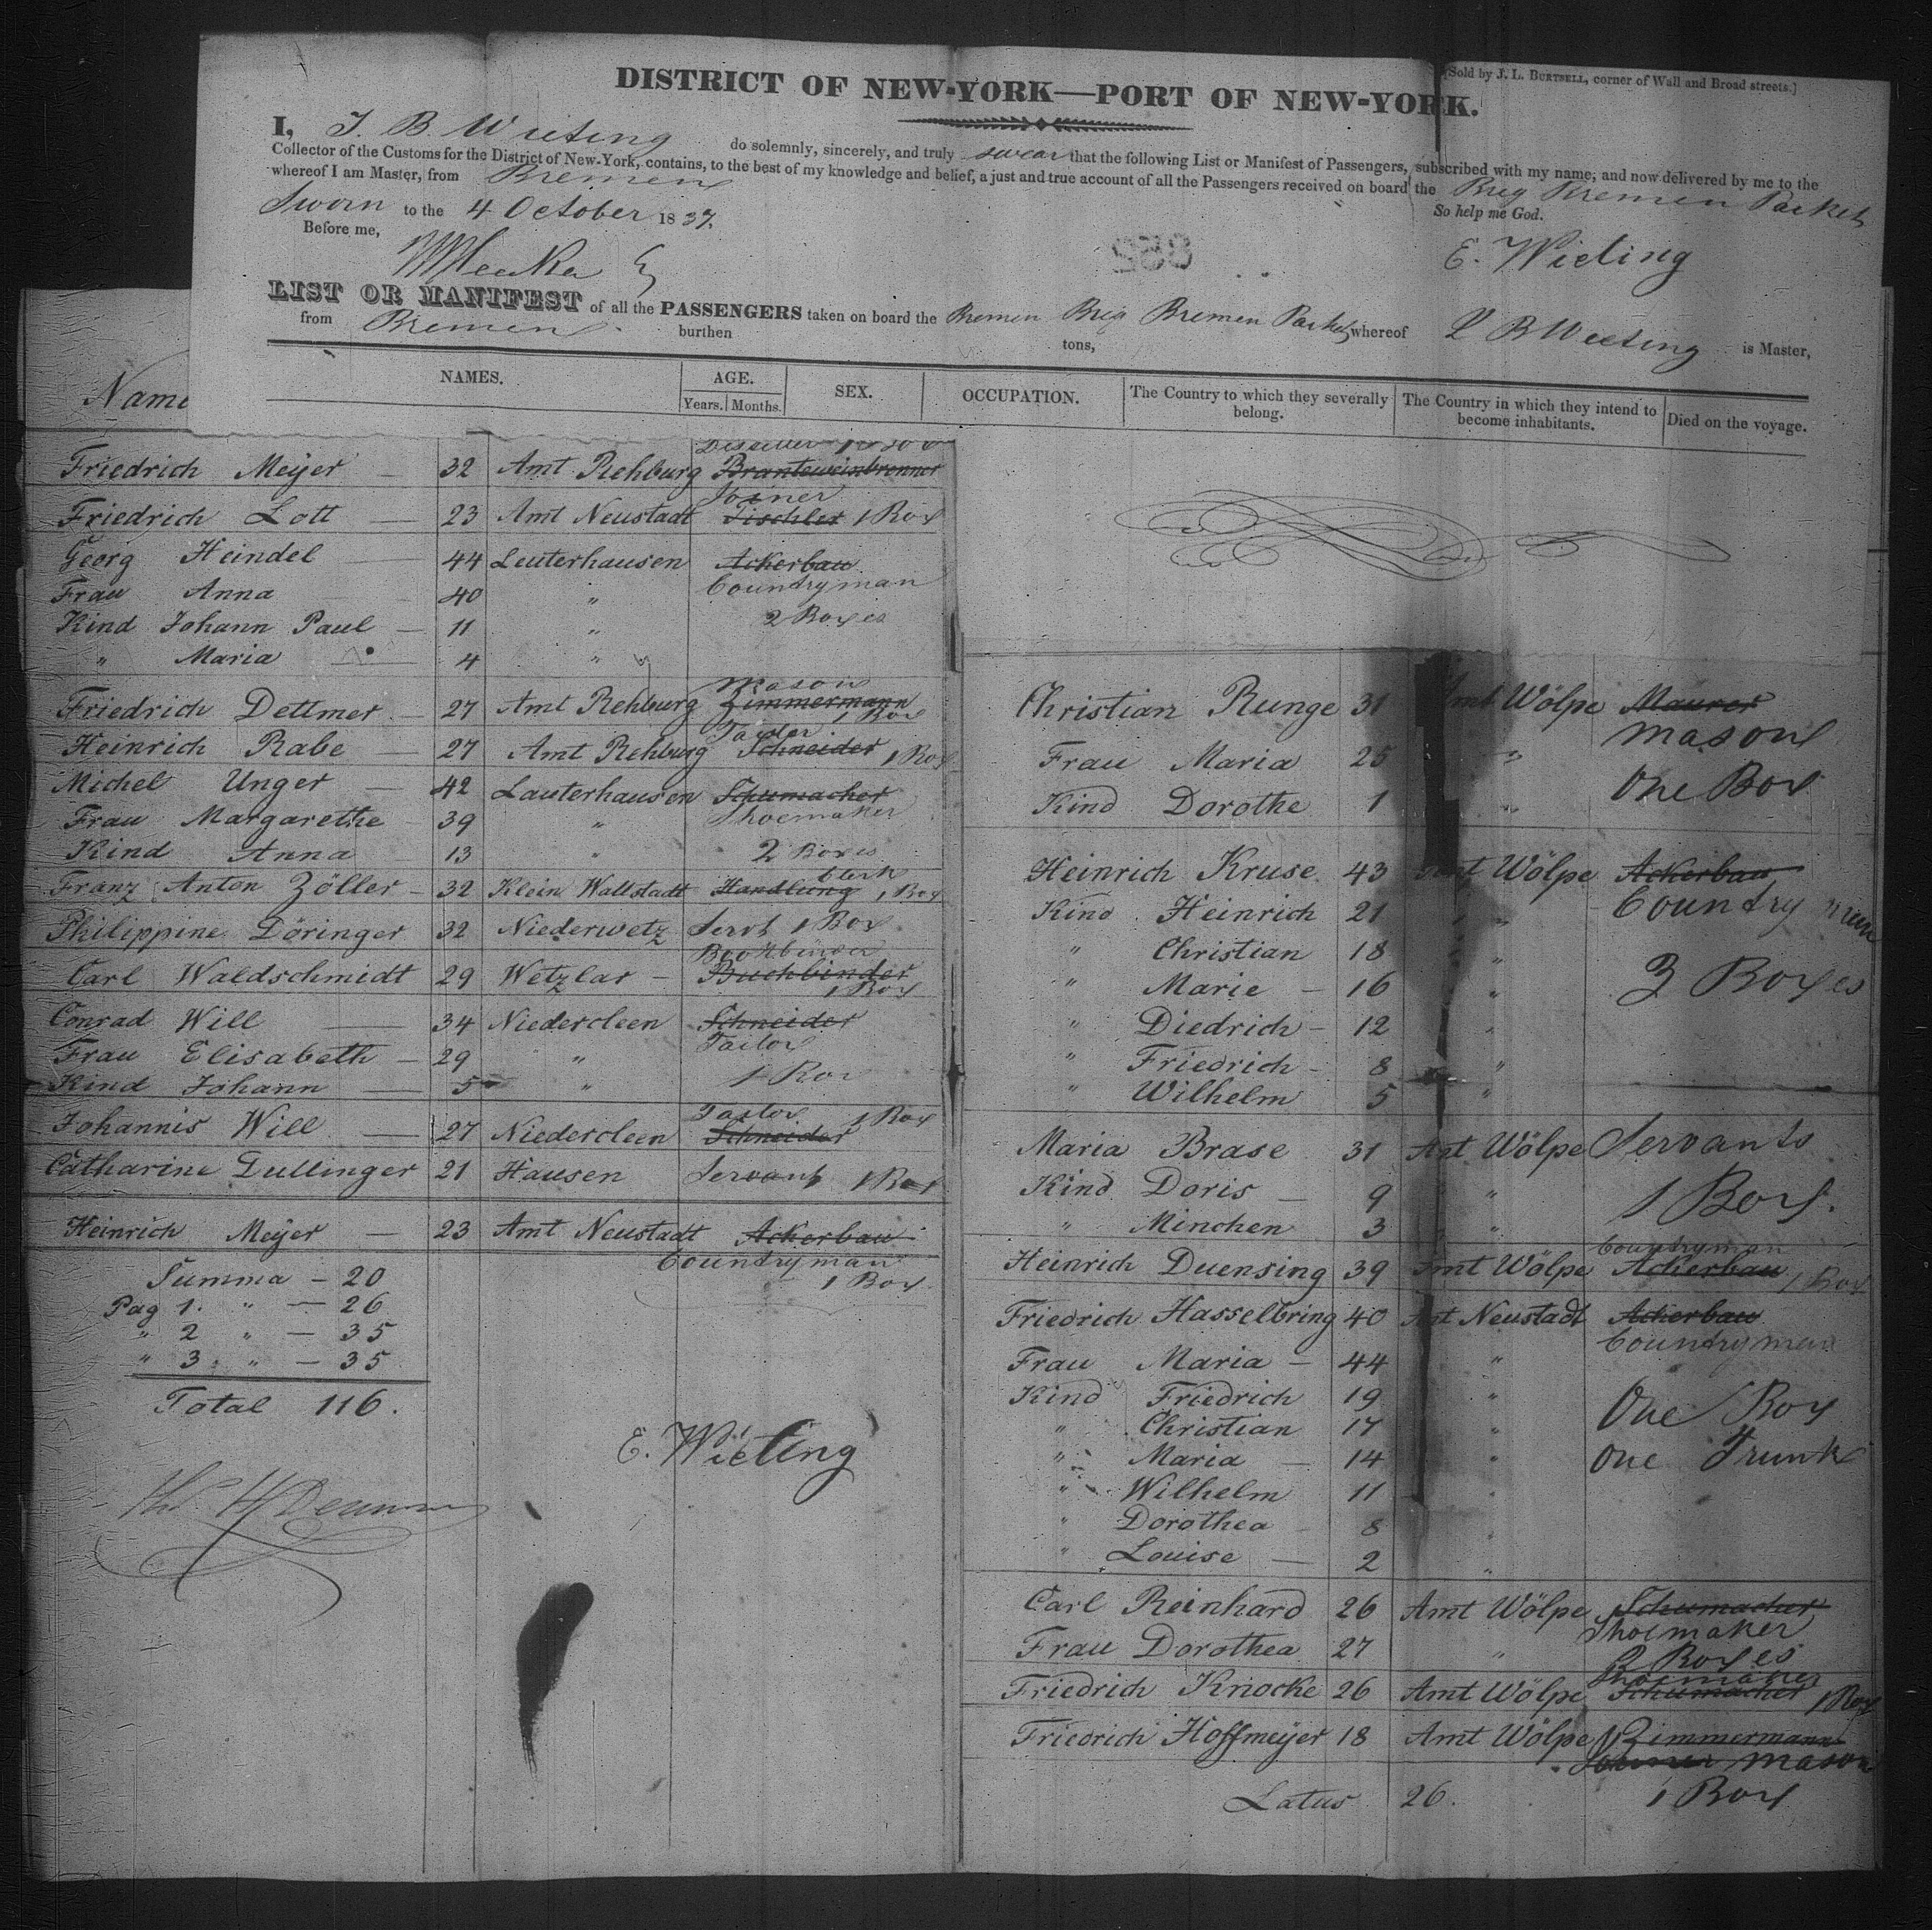 [Sold by J. L. BURTSELL, corner of Wall and Broad streets.]
DISTRICT OF NEW-YORK—PORT OF NEW-YORK.
I, J. B. Wieting do solemnly, sincerely, and truly swear that the following List or Manifest of Passengers, subscribed with my name, and now delivered by me to the
Collector of the Customs for the District of New-York, contains, to the best of my knowledge and belief, a just and true account of all the Passengers received on board the Brig Bremen Packet
whereof I am Master, from Bremen
So help me God.
Sworn to the 4 October 1837.
Before me,
E. Wieting
LIST OR MANIFEST of all the PASSENGERS taken on board the Bremen Brig Bremen Packet whereof B Wieting is Master,
from Bremen burthen tons,
NAMES. AGE. SEX. OCCUPATION. The Country to which they severally belong. The Country in which they intend to become inhabitants. Died on the voyage.
Years. Months.
Name
Friedrich Meyer — 32 Amt Rehburg Branteweinbrenner
Joiner
Friedrich Lott — 23 Amt Neustadt Tischler 1 Box
Georg Heindel — 44 Leuterhausen Ackerbau
Countryman
Frau Anna 40 "
Kind Johann Paul — 11 " 2 Boxes
" Maria 4 "
Mason
Friedrich Dettmer — 27 Amt Rehburg Zimmermann
1 Box
Tailor
Heinrich Rabe — 27 Amt Rehburg Schneider 1 Box
Michel Unger — 42 Lauterhausen Schumacher
Frau Margarethe 39 " Shoemaker
Kind Anna 13 " 2 Boxes
Clerk
Franz Anton Zöller — 32 Klein Wallstadt Handlung 1 Box
Philippine Döringer 32 Niederwetz Servt 1 Box
Bookbinder
Carl Waldschmidt 29 Wetzlar — Buchbinder
1 Box
Conrad Will — 34 Niedercleen Schneider
Tailor
Frau Elisabeth — 29 "
Kind Johann — 5 " 1 Box
Tailor 1 Box
Johannis Will — 27 Niedercleen Schneider
Catharine Dullinger 21 Hausen Servant 1 Box
Heinrich Meyer — 23 Amt Neustadt Ackerbau
Countryman
1 Box
Summa — 20
Pag 1. " — 26
" 2 " — 35
" 3. " — 35
Total 116.
E. Wieting
Christian Runge 31 Amt Wölpe Maurer
Mason
Frau Maria 25 "
Kind Dorothe 1 " One Box
Heinrich Kruse 43 Amt Wölpe Ackerbau
Country men
Kind Heinrich 21 "
" Christian 18 "
" Marie — 16 " 3 Boxes
" Diedrich — 12 "
" Friedrich — 8 "
" Wilhelm 5 "
Maria Brase 31 Amt Wölpe Servants
Kind Doris — 9 " 1 Box.
" Minchen 3 "
Countryman
Heinrich Duensing 39 Amt Wölpe Ackerbau 1 Box
Friedrich Hasselbring 40 Amt Neustadt Ackerbau
Countryman
Frau Maria — 44 "
Kind Friedrich 19 " One Box
" Christian 17 "
" Maria — 14 " One Trunk
" Wilhelm 11 "
" Dorothea — 8 "
" Louise — 2 "
Carl Reinhard 26 Amt Wölpe Schumacher
Shoemaker
Frau Dorothea 27 " 2 Boxes
Shoemaker
Friedrich Knocke 26 Amt Wölpe Schumacher 1 Box
Friedrich Hoffmeyer 18 Amt Wölpe Zimmermann
Mason
Latus 26. 1 Box